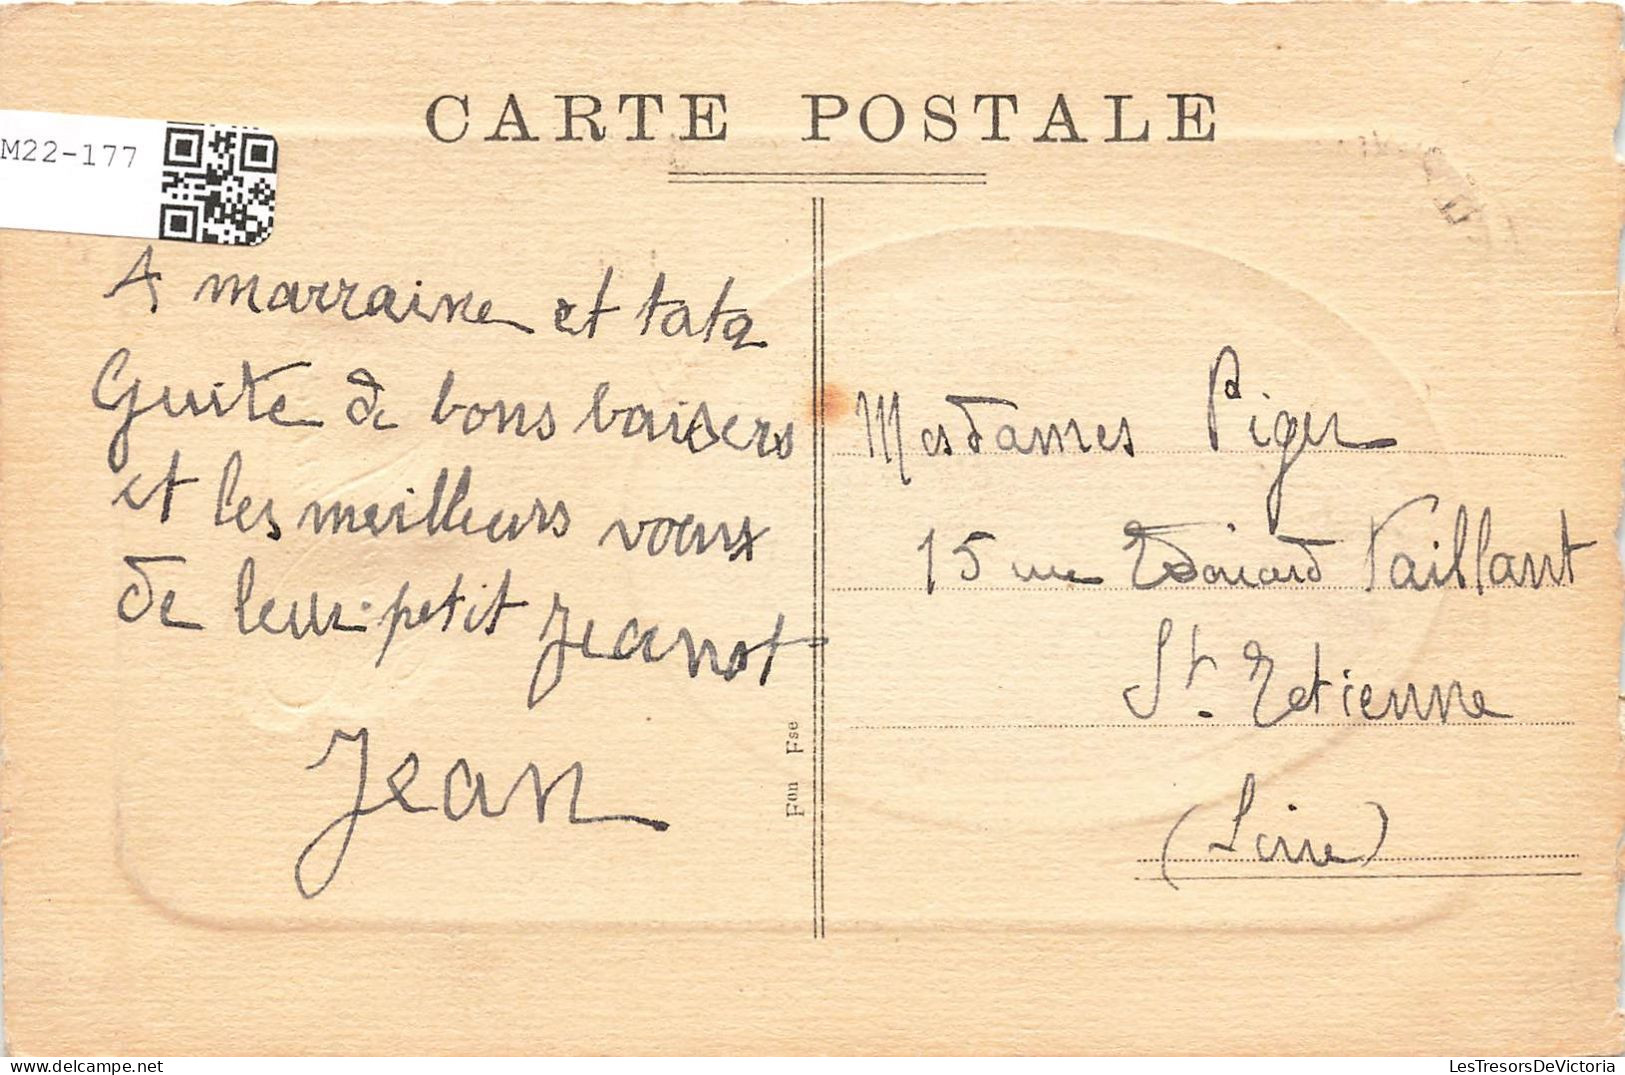 CARTE POSTALE
M22-177
A marraine et tata
Guite de bons baisers
et les meilleurs voeux
de leur petit Jeanot
Jean
Fon Fse
Mesdames Piger
15 rue Edouard Vaillant
St. Etienne
(Loire)
www.delcampe.net
LesTresorsDeVictoria